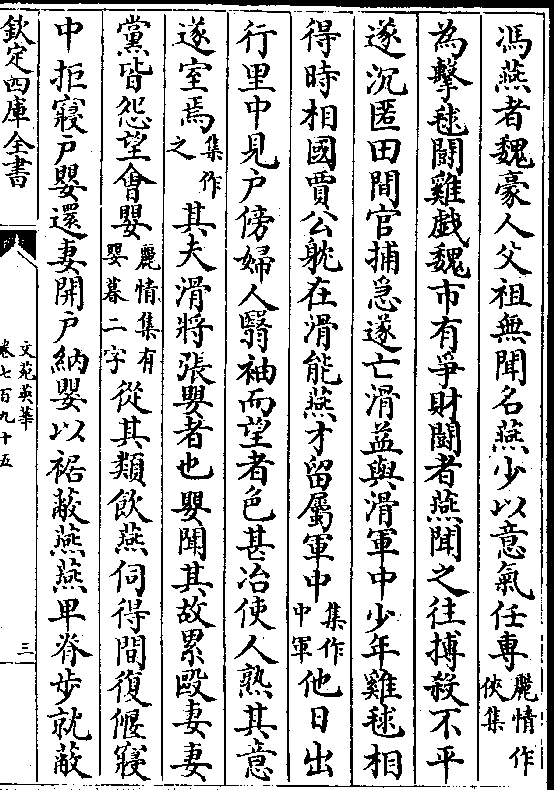 馮燕者魏豪人父祖無聞名燕少以意氣任專麗情集作俠
為擊毬鬪雞戲魏市有爭財鬪者燕聞之往搏殺不平
遂沉匿田間官捕急遂亡滑益與滑軍中少年雞毬相
得時相國賈公躭在滑能燕才留屬軍中集作中軍他日出
行里中見户傍婦人翳袖而望者色甚冶使人熟其意
遂室焉集作之其夫滑將張嬰者也嬰聞其故累毆妻妻
黨皆怨望會嬰麗情集有嬰暮二字從其類飲燕伺得間復偃寢
中拒寢户嬰還妻開户納嬰以裾蔽燕燕卑脊步就蔽
欽定四庫全書
文苑英華
卷七百九十五
三